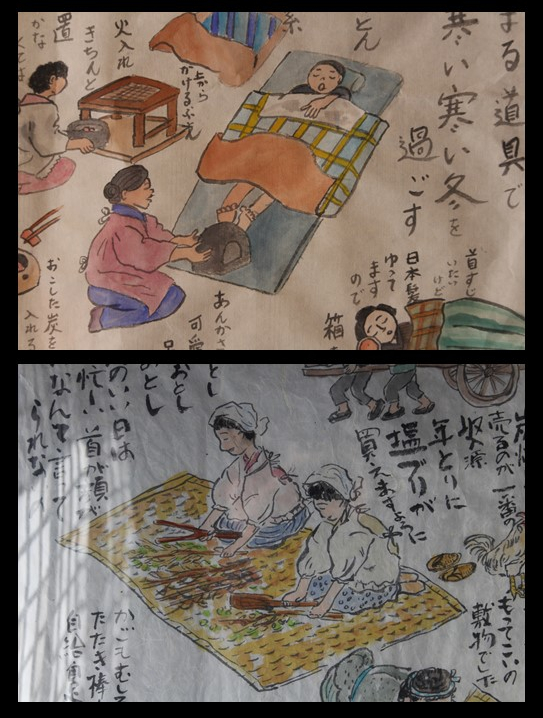 まる道具で
寒い寒い冬を
過ごす
とん
首すじ
いたい
けど
日本髪
ゆって
ます
ので
箱
上から
火入れ
きちんと
置
かな
くては
あんかさ
可愛
おこした炭を
入れろ
売るのが一番の
収源
年とりに
塩ブリが
買えますように
もってこいの
敷物でした
とし
おとし
とし
のいい日は
忙しい首が頭が
なんて言って
られない
たたき棒